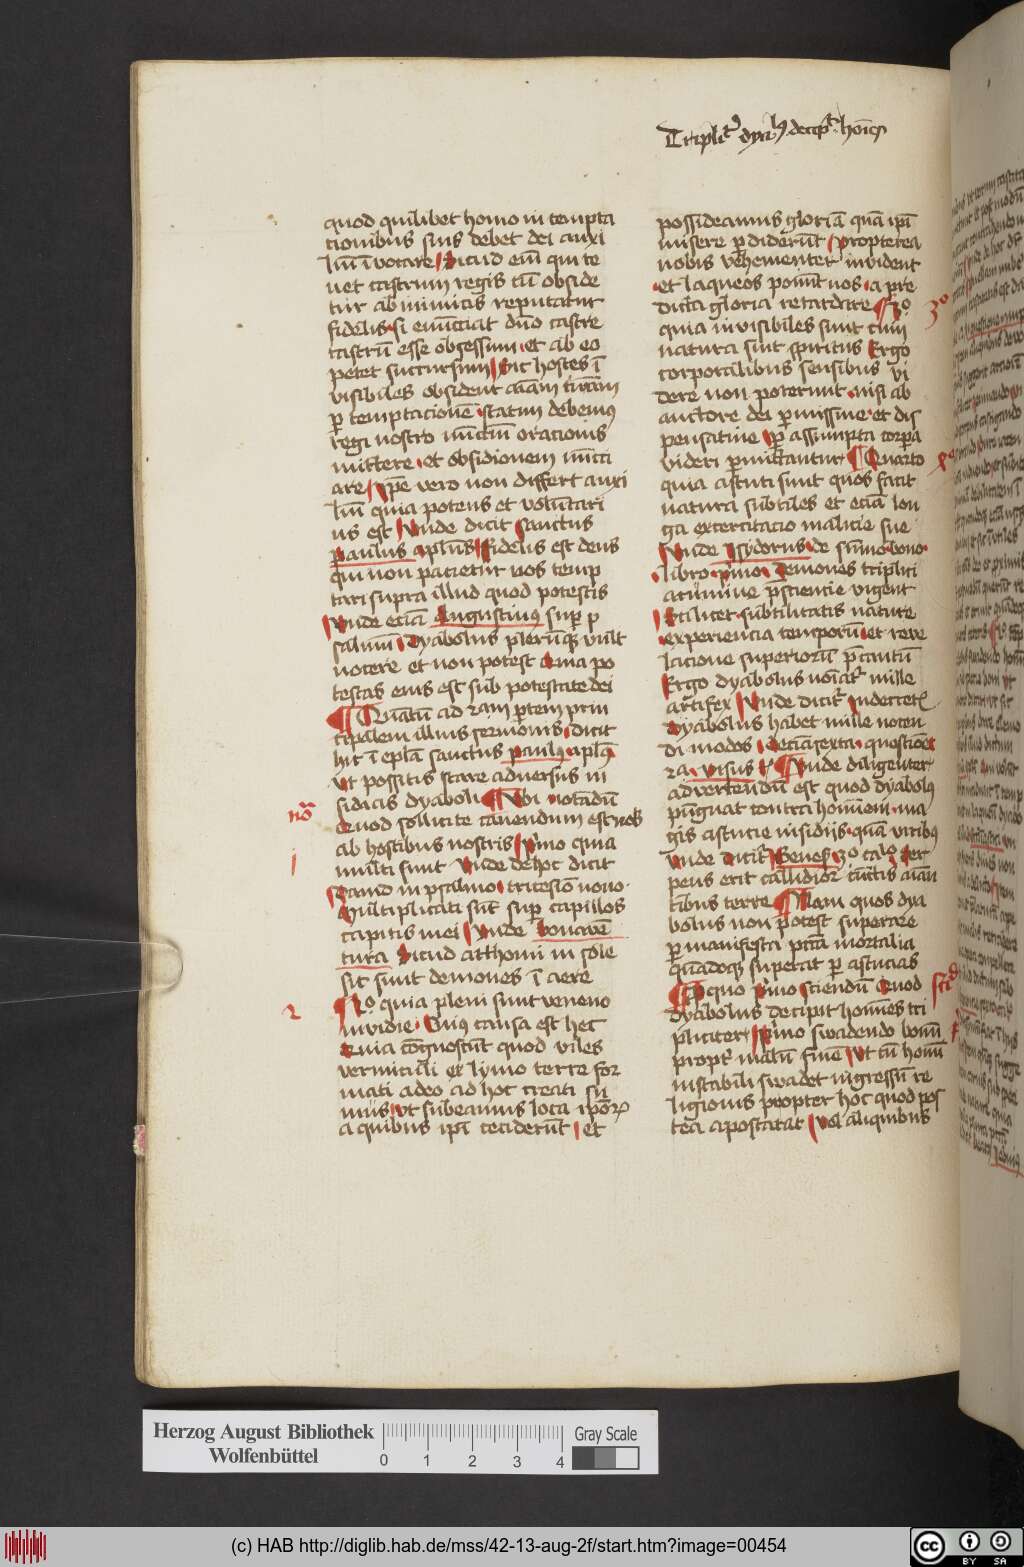 Triplicit᷑ dyab decip̄t hoīes
quod quilibet homo in tempta
cionibus suis debet dei auxi
liū īvocare Sicud eī qui te
net castrum regis cū obside
tur ab inimicis reputatur
fidelis si enūcciat dn̄o castre
castrū esse obsessum et ab eo
petet succursum Sic hostes ī
visibiles obsident aīam nr̄am
ꝑ temptacionē statim debemꝰ
regi nostro nūcciū oracionis
mittere et obsidionem nūcci
are Ip̄e vero non differt auxi
liū quia potens et voluntari
us est Unde dicit Sanctus
Paulus apl̄us Fidelis est deus
qui non pacietur vos temp
tari supra illud quod potestis
Unde eciā Augustinus suꝑ p̄
salmū Dyabolus plerūqꝫ vult
nocere et non potest Quia po
testas eius est sub potestate dei
Quātū ad 2am ꝑtem prin
cipalem illius sermonis dicit
hic ī epl̄a sanctus paulus apl̄us
Ut possitis stare adversus in
sidias dyaboli Ubi notādū
nō
Quod sollicite cavendum est nob̄
ab hostibus nostris Pͥmo quia
i
multi sunt Unde de hoc dicit
David in psalmo tricesīo nono
Multiplicati sūt suꝑ capillos
capitis mei Unde bonavē
tura Sicud atthomi in sole
sic sunt demones ī aere
2
2o quia pleni sunt veneno
invidie Cuius causa est hec
Quia cōgnoscūt quod viles
vermiculi et lymo terre for
mati adeo ad hoc creati su
mus ut subeamus loca ip̄oꝝ
a quibus ip̄i ceciderūt et
possideamus gloriā quā ip̄i
misere ꝑdiderūt propterea
nobis vehementer invident
et laqueos ponūt nos a pre
dicta gloria retardare 3o
3o
quia invisibiles sunt cum
natura sint spiritus Ergo
corporalibus sensibus vi
dere non poterunt nisi ab
auctore dei ꝑmissive et dis
pensative ꝑ assumpta corpora
videri ꝑmittantur Quarto
quia astuti sunt quos facit
natura subtiles et eciā lon
ga exercitacio malicie sue
Unde Isydorus de sūmo bono
libro pͥmo Demones triplici
acumine p̄sciencie vigent
Scilicet subtilitatis nature
experiencia temporū et reve
lacione superiorū p̄cantū
Ergo dyabolus noīat᷑ mille
artifex Unde dicit᷑ Indecret
Dyabolus habet mille nocen
di modos
Unde diligenter
advertendū est quod dyabolꝰ
pūgnat contra hominem ma
gis astucie insidiis quā viribꝰ
Unde dicit᷑ Genes 3o ca Ser
pens erit callidior cūctis aīan
tibus terre Nam quos dya
bolus non potest superare
ꝑ manifesta pctā mortalia
quādoqꝫ superat ꝑ astucias
Pro quo pͥmo sciendū Quod
dyabolus decipit homines tri
pliciter Pͥmo swadendo bonū
propt᷑ malū finē Ut cū homī
instabili swadet ingressū re
ligionis propter hoc quod pos
tea apostatat Vel aliquibus
Herzog August Bibliothek
Wolfenbüttel
0 1 2 3 4
Gray Scale
(c) HAB http://diglib.hab.de/mss/42-13-aug-2f/start.htm?image=00454
cc BY SA